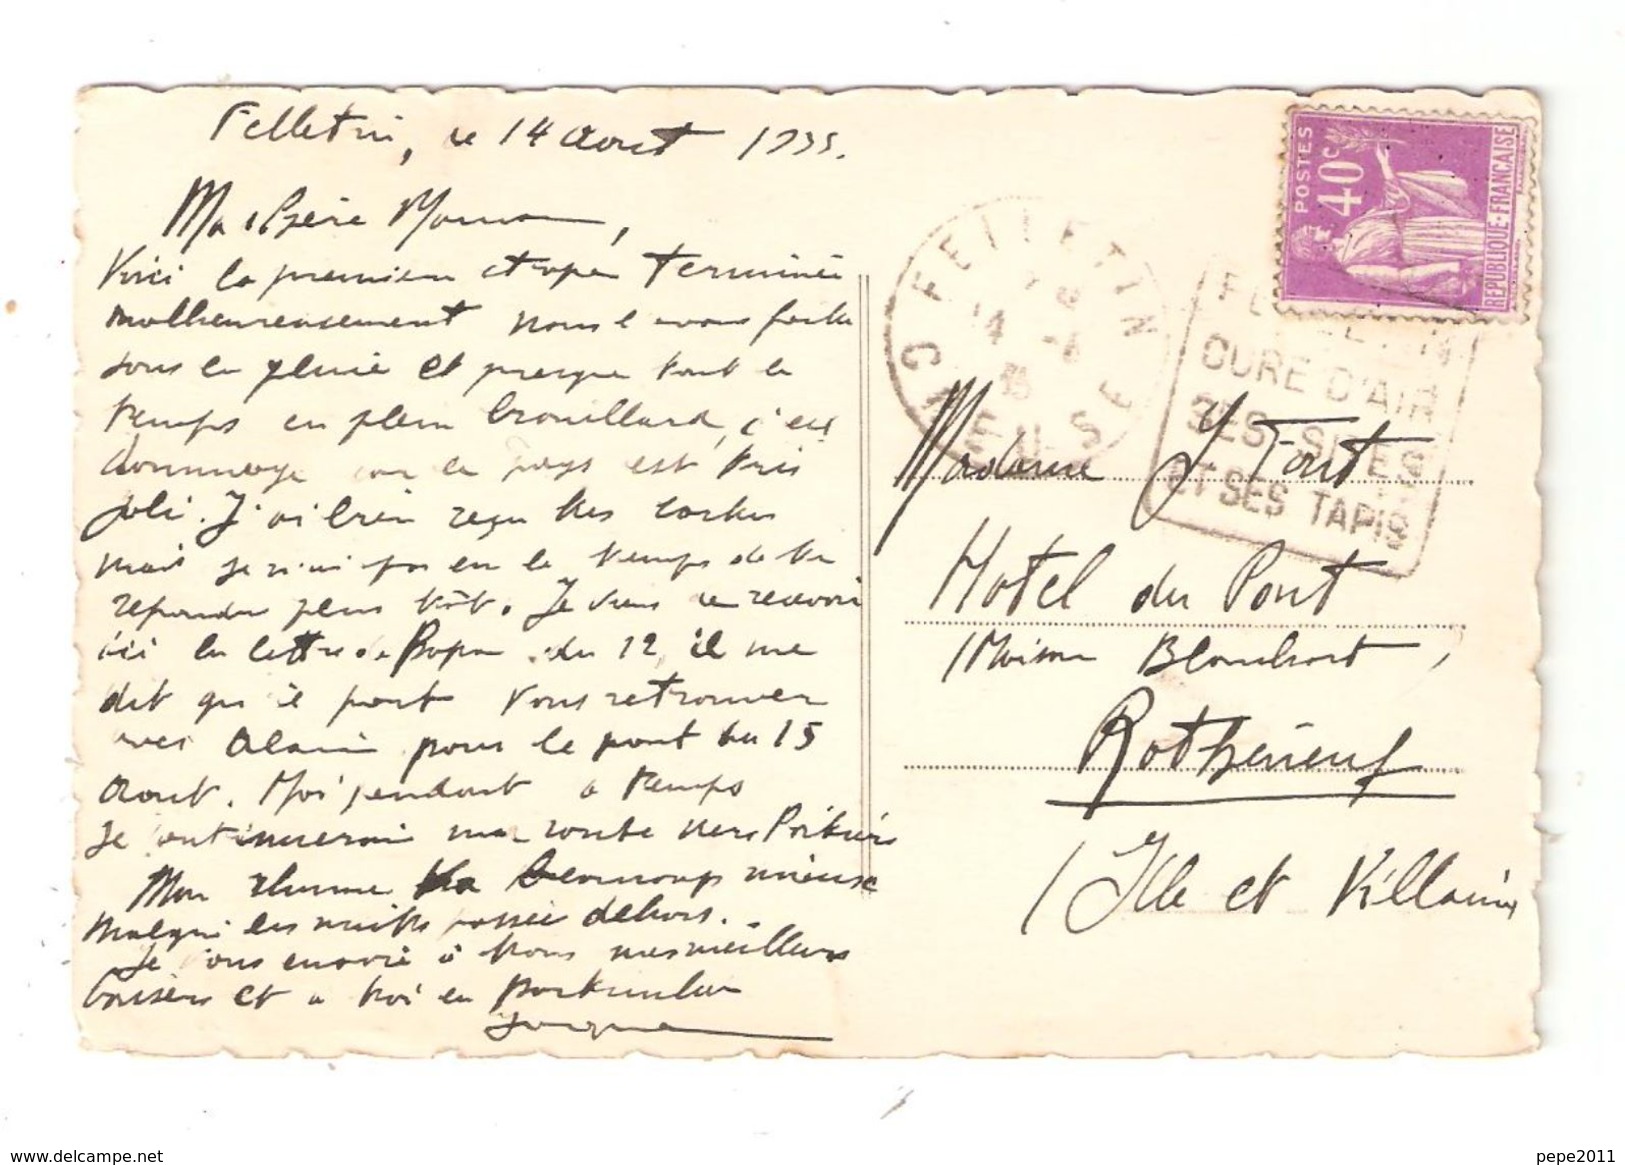 Felletin, le 14 Aout 1935.
Ma chérie Maman,
Voici la premiere etape terminée
malheureusement nous l'avons faite
sous la pluie et presque tout le
temps en plein brouillard, c'est
dommage car le pays est très
joli. J'ai bien reçu tes cartes
mais je n'ai pas eu le temps de te
repondre plus tôt. Je viens de recevoir
ici la lettre de Papa du 12, il me
dit qu'il part vous retrouver
avec Alain pour le pont du 15
Aout. Moi pendant ce temps
je continuerai ma route vers Poitiers
Mon rhume va beaucoup mieux
malgré les nuits passée dehors.
Je vous envoie à tous mes meilleurs
baisers et a toi en particulier
Jacques
POSTES
40c
REPUBLIQUE-FRANÇAISE
FELLETIN
14 -8
35
CREUSE
FELLETIN
CURE D'AIR
SES SITES
ET SES TAPIS
Madame Y Font
Hotel du Pont
(Maison Blanchart)
Rothéneuf
(Ille et Villaine
www.delcampe.net
pepe2011